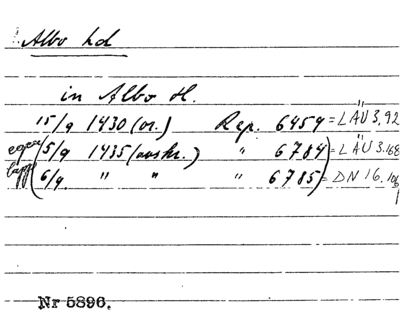 Albo hd
in Albo H.
15/9 1430 (or.) Rep. 6459 = LÄU 3.92
egen (5/9 1435 (avskr.) " 6784) = LÄU 3.168
läpp (6/9. " " " 6785) = DN 16.106
Nr 5896.